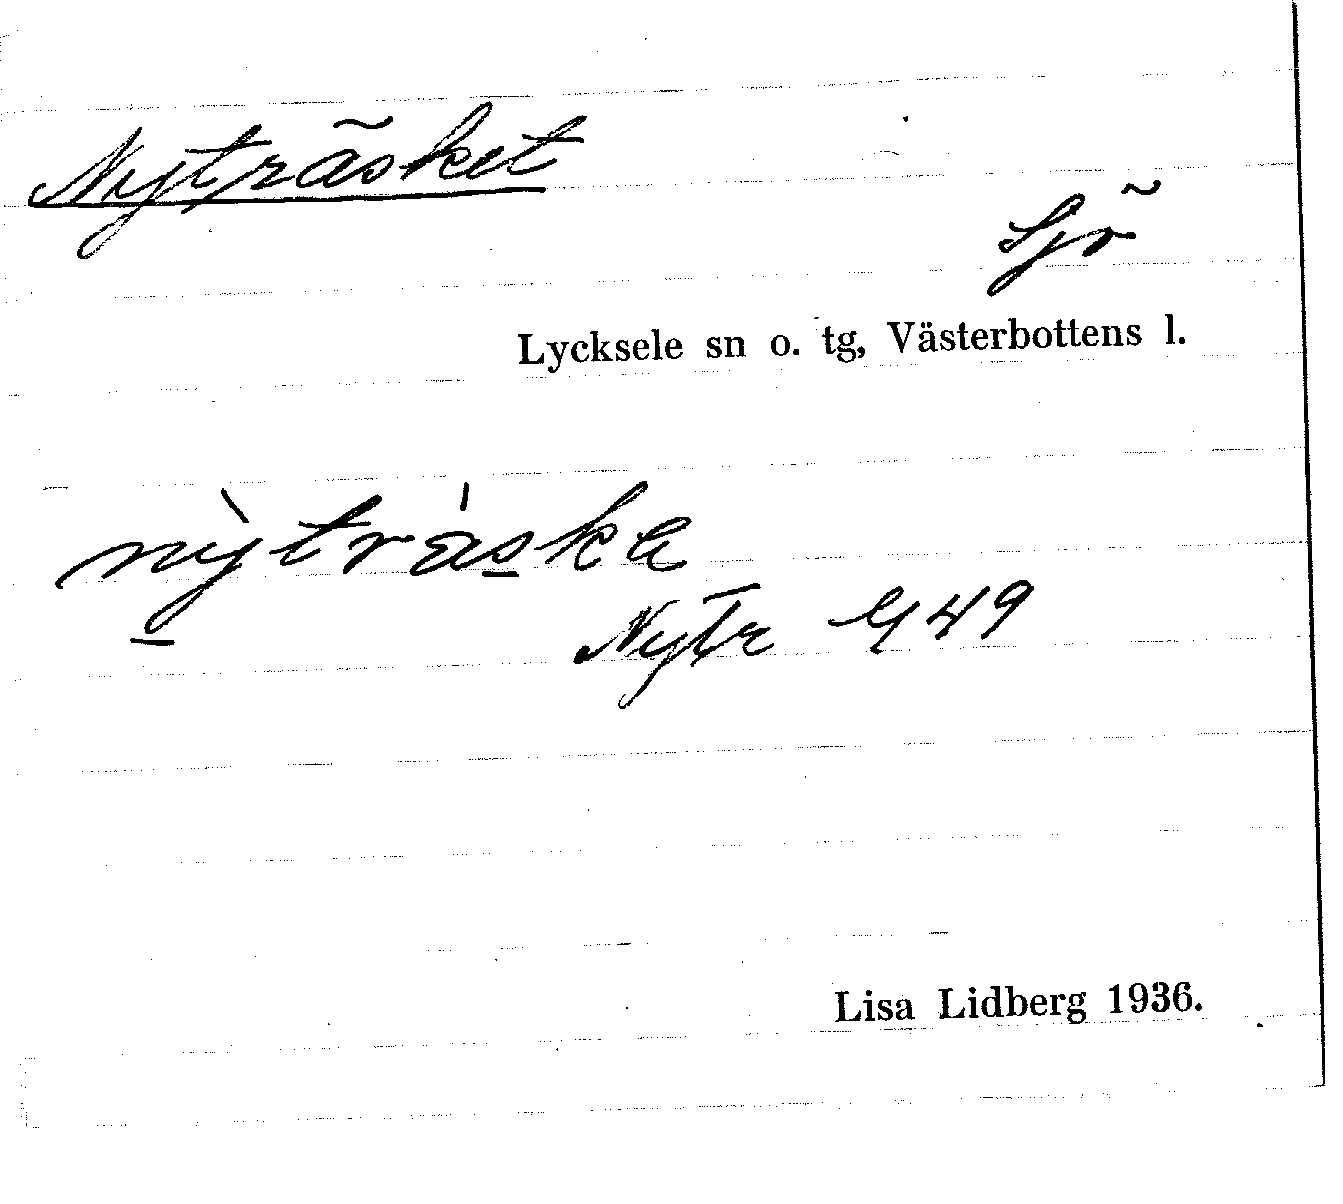 Nyträsket
Sjö
Lycksele sn o. tg, Västerbottens l.
nỳtráska
Nytr 449
Lisa Lidberg 1936.